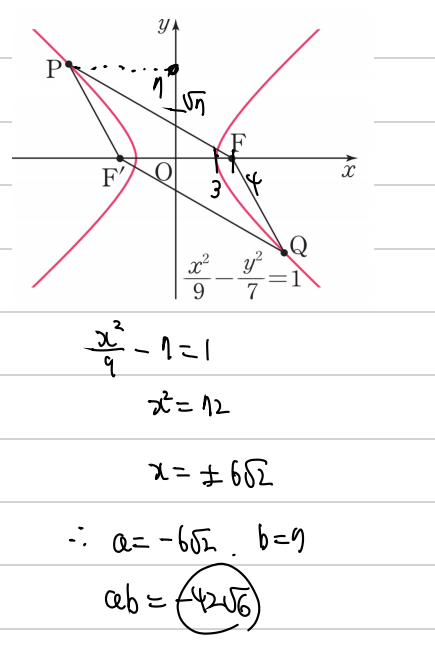 y
P
7
√7
F
F′
O
3
4
x
Q
x²/9 − y²/7 = 1
x²/9 − 7 = 1
x² = 72
x = ± 6√2
∴ a = −6√2 . b = 7
ab = −42√6